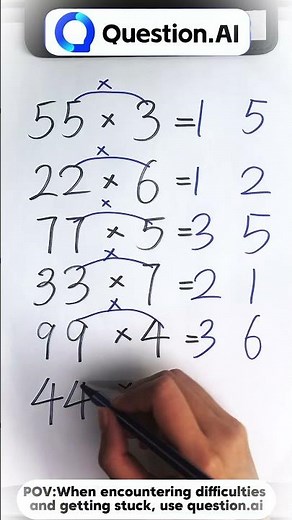 Question.AI
×
55 × 3 = 1 5
×
22 × 6 = 1 2
×
77 × 5 = 3 5
×
33 × 7 = 2 1
×
99 × 4 = 3 6
44
POV:When encountering difficulties
and getting stuck, use question.ai